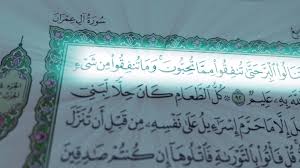 سُورَةُ آلِ عِمْرَانَ
تَنَالُوا الْبِرَّ حَتَّىٰ تُنفِقُوا مِمَّا تُحِبُّونَ ۚ وَمَا تُنفِقُوا مِن شَىْءٍ
بِهِۦ عَلِيمٌ ﴿٩٢﴾ ۞ كُلُّ الطَّعَامِ كَانَ حِلًّا لِّبَنِىٓ
إِلَّا مَا حَرَّمَ إِسْرَٰٓءِيلُ عَلَىٰ نَفْسِهِۦ مِن قَبْلِ أَن تُنَزَّلَ
فَأْتُوا بِالتَّوْرَىٰةِ فَاتْلُوهَآ إِن كُنتُمْ صَٰدِقِينَ